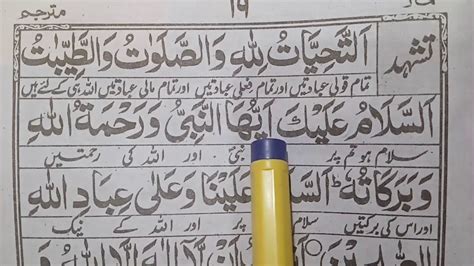 ١٩ مترجم
تشهد
اَلتَّحِيَّاتُ لِلّٰهِ وَالصَّلَوٰتُ وَالطَّيِّبٰتُ
تمام قولی عبادتیں اور تمام فعلی عبادتیں اور تمام مالی عبادتیں اللہ ہی کے لئے ہیں
اَلسَّلَامُ عَلَيْكَ اَيُّهَا النَّبِىُّ وَرَحْمَةُ اللهِ
سلام ہو تم پر نبی اور اللہ کی رحمتیں
وَبَرَكَاتُهٗ عَلَيْنَا وَعَلٰى عِبَادِ اللهِ
اور اس کی برکتیں سلام پر اور اللہ کے نیک
لَّآ اِلٰهَ اِلَّا اللهُ